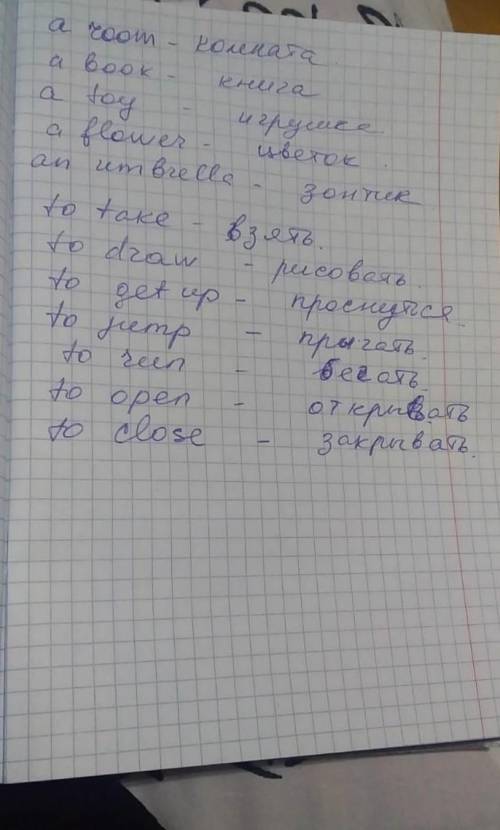 a room - комната
a book - книга
a toy - игрушка
a flower - цветок.
an umbrella - зонтик
to take - взять.
to draw - рисовать.
to get up - проснуться.
to jump - прыгать.
to run - бегать.
to open - открывать
to close - закрывать.